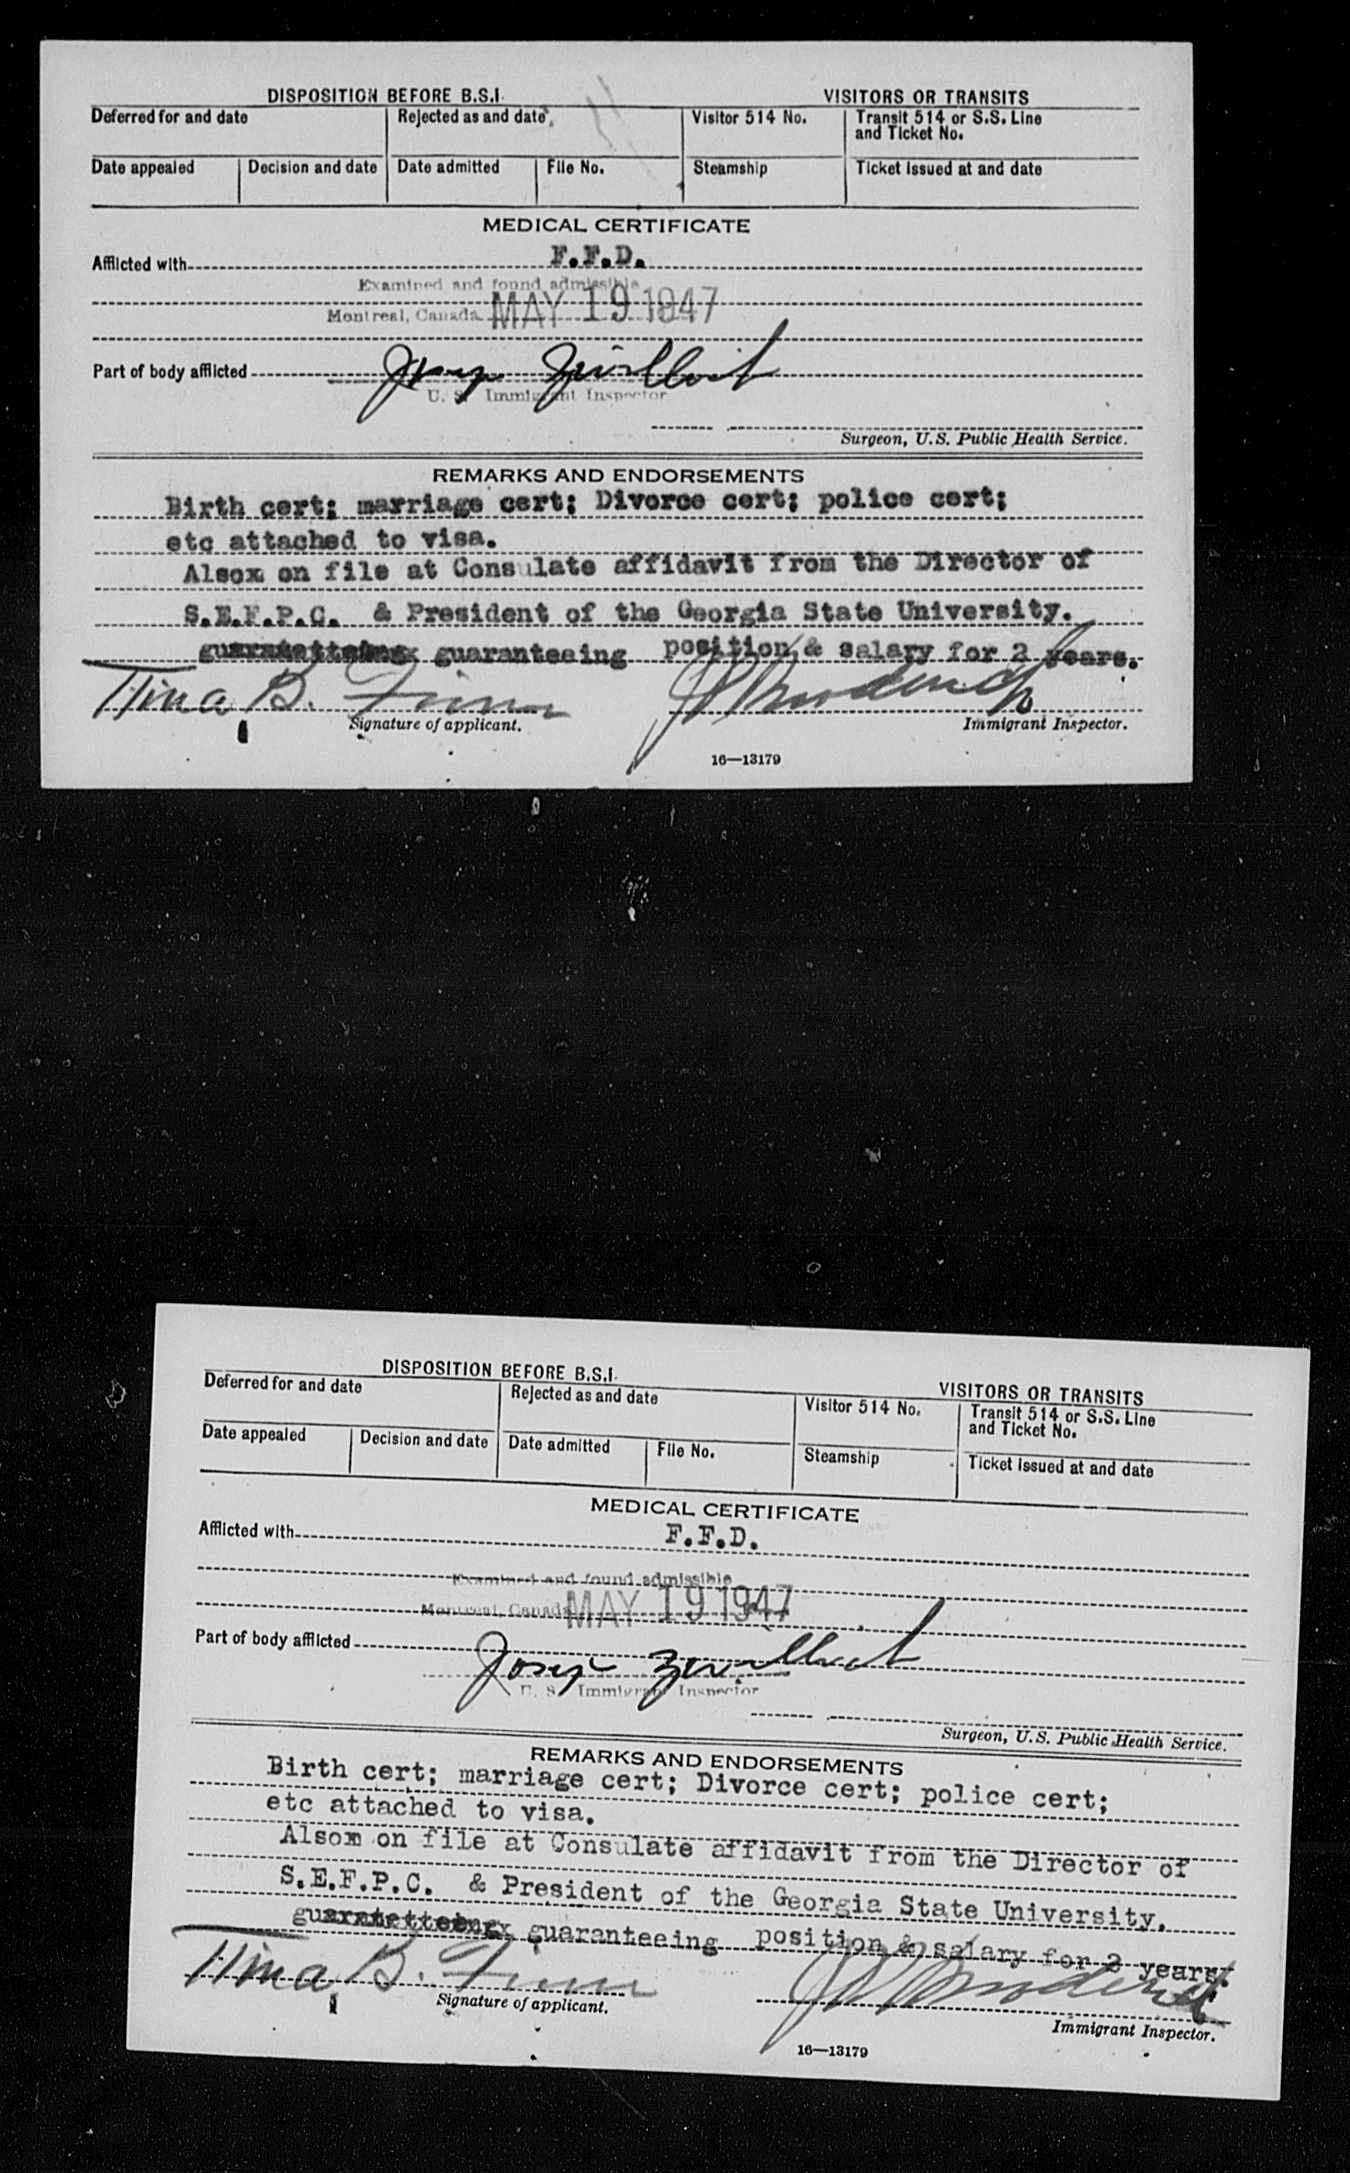 DISPOSITION BEFORE B.S.I.
VISITORS OR TRANSITS
Deferred for and date
Rejected as and date
Visitor 514 No.
Transit 514 or S.S. Line
and Ticket No.
Date appealed
Decision and date
Date admitted
File No.
Steamship
Ticket issued at and date
MEDICAL CERTIFICATE
Afflicted with
F.F.D.
Examined and found admissible
Montreal, Canada MAY 19 1947
Part of body afflicted
U. S. Immigrant Inspector
Surgeon, U.S. Public Health Service.
REMARKS AND ENDORSEMENTS
Birth cert; marriage cert; Divorce cert; police cert;
etc attached to visa.
Alsox on file at Consulate affidavit from the Director of
S.E.F.P.C. & President of the Georgia State University.
guaranteeing position & salary for 2 years.
Tina B. Finn
Signature of applicant.
Immigrant Inspector.
16—13179
DISPOSITION BEFORE B.S.I.
VISITORS OR TRANSITS
Deferred for and date
Rejected as and date
Visitor 514 No.
Transit 514 or S.S. Line
and Ticket No.
Date appealed
Decision and date
Date admitted
File No.
Steamship
Ticket issued at and date
MEDICAL CERTIFICATE
Afflicted with
F.F.D.
Examined and found admissible
Montreal, Canada MAY 19 1947
Part of body afflicted
U. S. Immigrant Inspector
Surgeon, U.S. Public Health Service.
REMARKS AND ENDORSEMENTS
Birth cert; marriage cert; Divorce cert; police cert;
etc attached to visa.
Alsox on file at Consulate affidavit from the Director of
S.E.F.P.C. & President of the Georgia State University.
guaranteeing position & salary for 2 years.
Tina B. Finn
Signature of applicant.
Immigrant Inspector.
16—13179